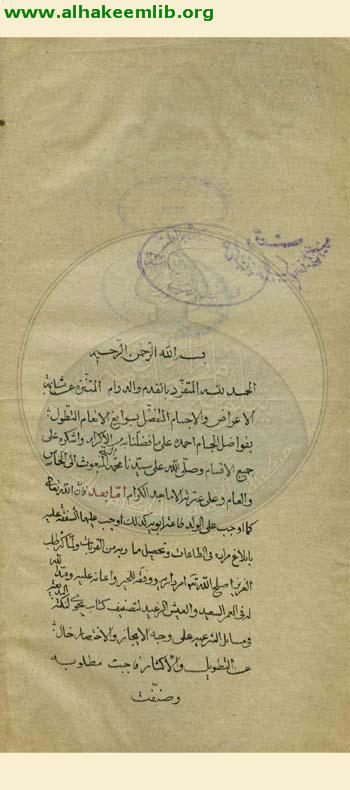 www.alhakeemlib.org
بسم الله الرحمن الرحيم
الحمد لله المتفرد بالقدم والدوام المتنزه عن مشابهة
الاعراض والاجسام المتفضل بسوابغ الانعام المتطول
بفواضل الجسام احمده على ما فضلنا به من الاكرام واشكره على
جميع الاقسام وصلى الله على سيدنا محمد النبي المبعوث الى الخاص
والعام وعلى عترته الاماجد الكرام اما بعد فان الله تعالى
كما اوجب على الولد طاعة ابويه كذلك اوجب عليهما الشفقة عليه
بابلاغ مراده في الطاعات وتحصيل ما يرومه من القربات ولما كثر طلب الولد
العزيز اصلح الله له امر داريه ووفقه للخير واعانه عليه ومد الله
له في العمر السعيد والعيش الرغيد لتصنيف كتاب يحوي النكت البديعة
في مسائل الشريعة على وجه الايجاز والاختصار خال
عن التطويل والاكثار فاجبت مطلوبه
وصنفت